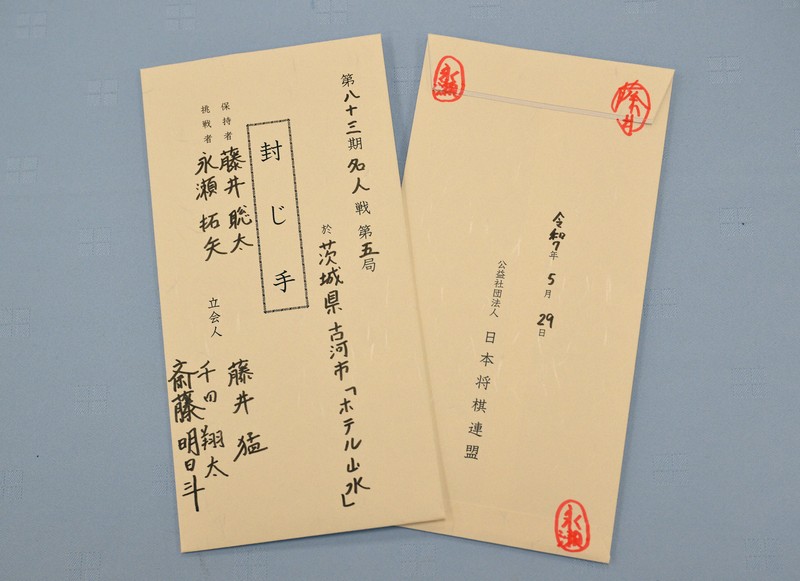 第八十三期名人戦第五局
於 茨城県古河市「ホテル山水」
封じ手
保持者 藤井聡太
挑戦者 永瀬拓矢
立会人
藤井 猛
千田翔太
斎藤明日斗
永瀬
藤井
令和7年5月29日
公益社団法人
日本将棋連盟
永瀬